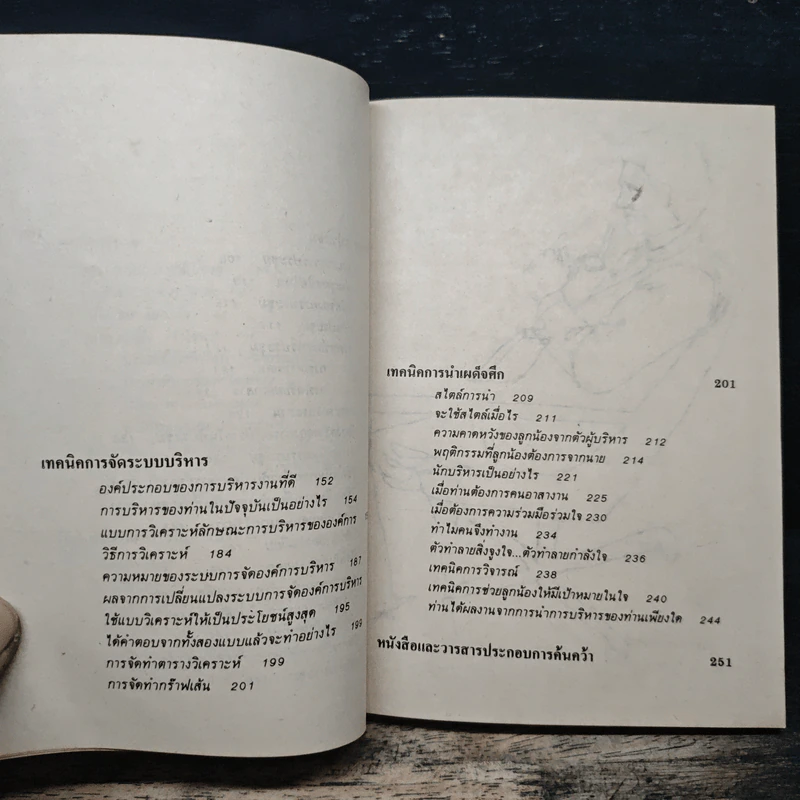 เทคนิคการจัดระบบบริหาร
องค์ประกอบของการบริหารงานที่ดี 152
การบริหารของท่านในปัจจุบันเป็นอย่างไร 154
แบบการวิเคราะห์ลักษณะการบริหารขององค์การ
วิธีการวิเคราะห์ 184
ความหมายของระบบการจัดองค์การบริหาร 187
ผลจากการเปลี่ยนแปลงระบบการจัดองค์การบริหาร
ใช้แบบวิเคราะห์ให้เป็นประโยชน์สูงสุด 195
ได้คำตอบจากทั้งสองแบบแล้วจะทำอย่างไร 199
การจัดทำตารางวิเคราะห์ 199
การจัดทำกร๊าฟเส้น 201
เทคนิคการนำเผด็จศึก 201
สไตล์การนำ 209
จะใช้สไตล์เมื่อไร 211
ความคาดหวังของลูกน้องจากตัวผู้บริหาร 212
พฤติกรรมที่ลูกน้องต้องการจากนาย 214
นักบริหารเป็นอย่างไร 221
เมื่อท่านต้องการคนอาสางาน 225
เมื่อต้องการความร่วมมือร่วมใจ 230
ทำไมคนจึงทำงาน 234
ตัวทำลายสิ่งจูงใจ...ตัวทำลายกำลังใจ 236
เทคนิคการวิจารณ์ 238
เทคนิคการช่วยลูกน้องให้มีเป้าหมายในใจ 240
ท่านได้ผลงานจากการนำการบริหารของท่านเพียงใด 244
หนังสือและวารสารประกอบการค้นคว้า 251